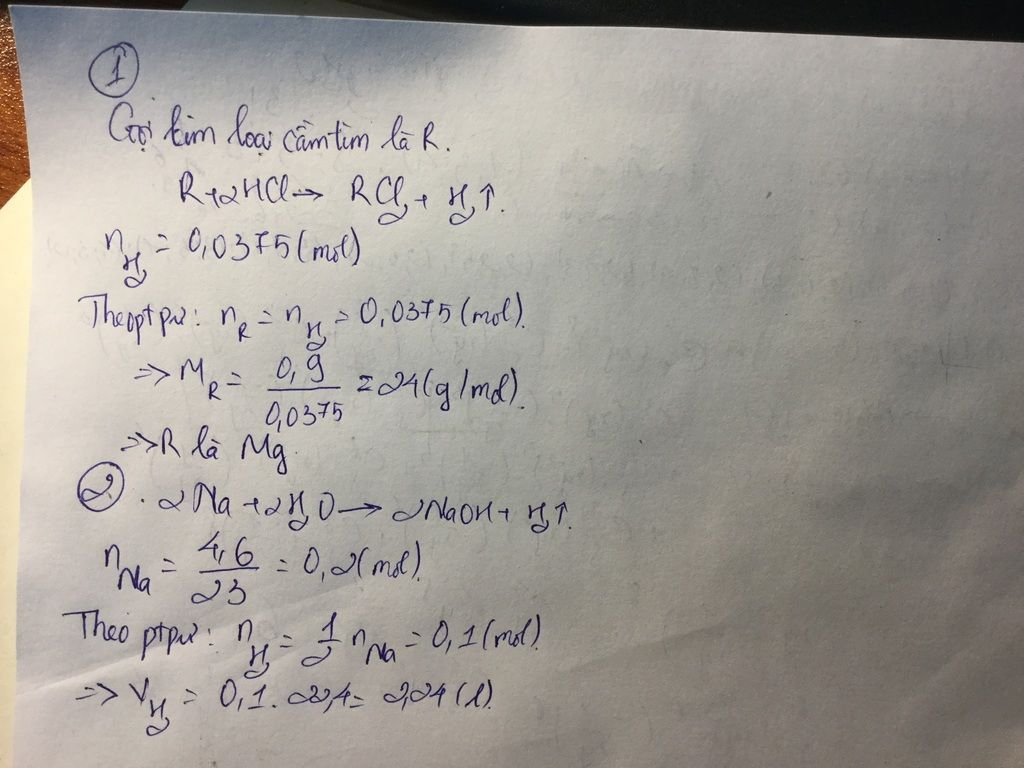 1
Gọi kim loại cần tìm là R.
R + 2HCl → RCl₂ + H₂↑.
n_H₂ = 0,0375 (mol)
Theo ptpư: n_R = n_H₂ = 0,0375 (mol).
=> M_R = 0,9 / 0,0375 = 24 (g/mol).
=> R là Mg.
2. 2Na + 2H₂O → 2NaOH + H₂↑.
n_Na = 4,6 / 23 = 0,2 (mol).
Theo ptpư: n_H₂ = 1/2 n_Na = 0,1 (mol).
=> V_H₂ = 0,1 . 22,4 = 2,24 (l).